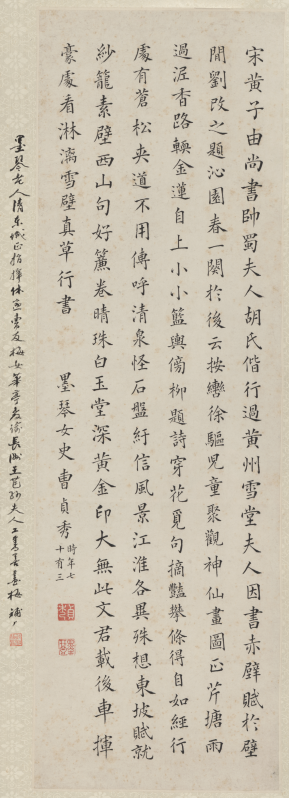 宋黃子由尚書帥蜀夫人胡氏偕行過黃州雪堂夫人因書赤壁賦於壁
間劉改之題沁園春一闋於後云按轡徐驅兒童聚觀神仙畫圖正芹塘雨
過泥香路輭金蓮自上小小籃輿傍柳題詩穿花覓句摘豔攀條得自如經行
處有蒼松夾道不用傳呼清泉怪石盤紆信風景江淮各異殊想東坡賦就
紗籠素壁西山句好簾卷晴珠白玉堂深黃金印大無此文君載後車揮
毫處看淋漓雪壁真草行書
墨琴女史曹貞秀
時年七
十有三
墨琴老人
夫人工書善畫梅